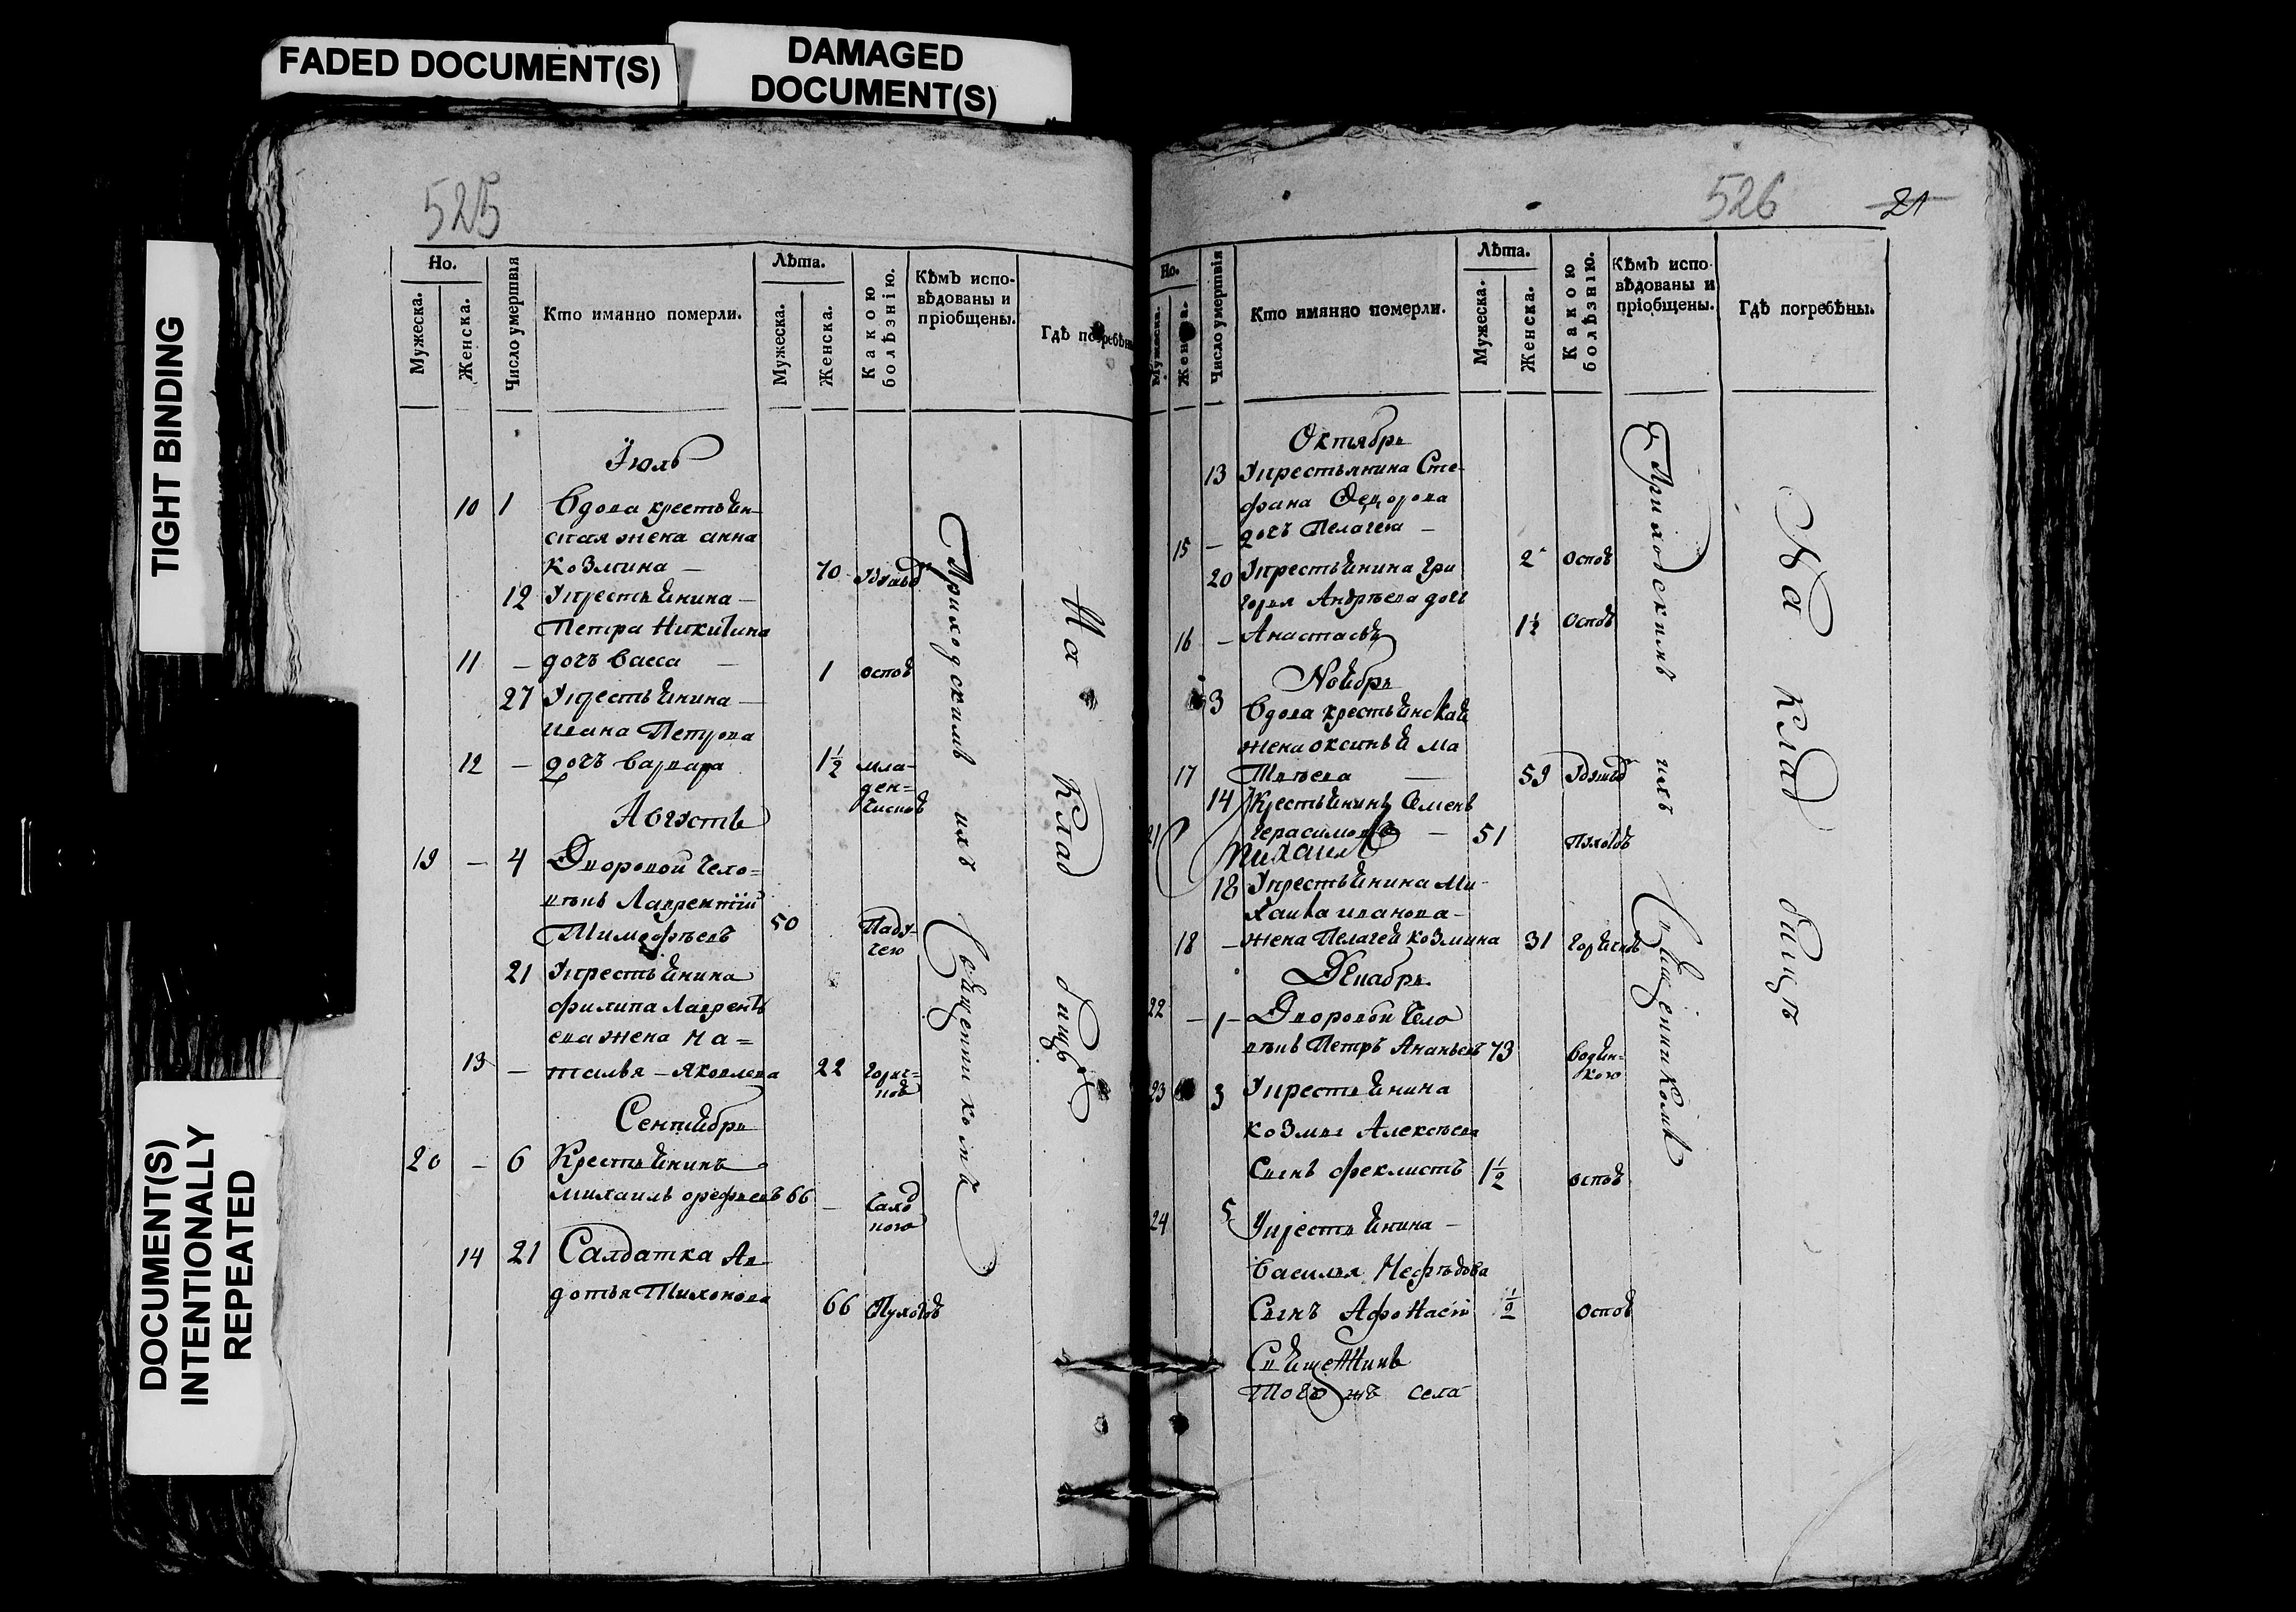 FADED DOCUMENT(S)
DAMAGED
DOCUMENT(S)
TIGHT BINDING
DOCUMENT(S)
INTENTIONALLY
REPEATED
525
Но.
Мужеска.
Женска.
Число умертвія
Кто имянно померли.
Лѣта.
Мужеска.
Женска.
Какою
болѣзнію.
Кѣмъ испо-
вѣдованы и
пріобщены.
Гдѣ погребены
Іюль
10 1 Вдова крестьян-
ская жена анна
козмина — 70
12 Крестьянина —
Петра Никитина
11 — дочь Васса — 1 оспоѣ
27 Крестьянина —
ивана Петрова
12 — дочь варвара 1½ мла-
ден-
ческоѣ
Августъ
19 — 4 Дворовой чело=
вѣкъ Лаврентій
Тимофѣевъ 50 Паду-
чею
21 Крестьянина
филипа Лаврентъ
ева жена на=
13 — талья — Яковлева 22 горяч-
коѣ
Сентябрь
20 — 6 Крестьянинъ
михаилъ орефьевъ 66 —
14 21 Салдатка Ав-
дотья Тихонова 66
Приходскимъ ихъ Священникомъ
На клад бищѣ
526
21
Но.
Мужеска.
Женска.
Число умертвія
Кто имянно померли.
Лѣта.
Мужеска.
Женска.
Какою
болѣзнію.
Кѣмъ испо-
вѣдованы и
пріобщены.
Гдѣ погребѣны.
Октябрь
13 Крестьянина Сте-
фана Федорова
15 — дочь Пелагея — 2 оспоѣ
20 Крестьянина Гри
горья Андрѣева дочь
16 — Анастасья 1½ оспоѣ
Ноябрь
3 Вдова крестьянская
жена оксинья ма
17 твѣева — 59
14 Крестьянинъ Семенъ
21 Герасимовъ — 51
Михаилъ
18 Крестьянина Ми-
хаила иванова —
18 — жена Пелагея козмина 31 горячкоѣ
Декабрь
22 — 1 — Дворовой чело
вѣкъ Петръ Ананьевъ 73 водян-
кою
23 3 Крестьянина
козмы Алексѣева
Сынъ феклистъ 1½ оспоѣ
24 5 Крестьянина —
василья Нефѣдова
Сынъ Афонасій ½ оспоѣ
Священникъ
того жъ села
Приходскимъ ихъ Священникомъ
На клад бищѣ